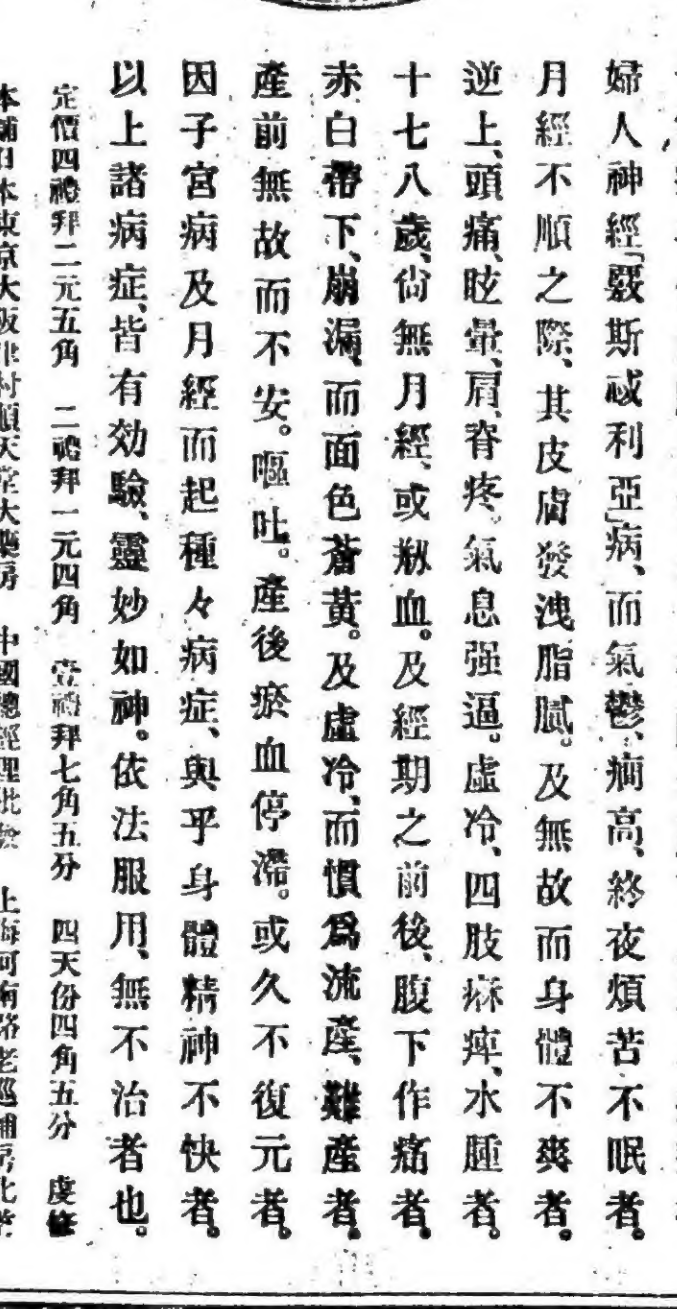 婦人神經「歇斯㦯利亞」病、而氣鬱、癇高、終夜煩苦不眠者。
月經不順之際、其皮膚發洩脂膩。及無故而身體不爽者。
逆上、頭痛、眩暈、肩脊疼。氣息强逼。虛冷、四肢痳痺、水腫者。
十七八歲、尙無月經、或衂血。及經期之前後、腹下作痛者。
赤白帶下、崩漏、而面色蒼黃。及虛冷、而慣爲流產、難產者。
產前無故而不安。嘔吐。產後瘀血停滯。或久不復元者。
因子宮病及月經而起種々病症、與乎身體精神不快者。
以上諸病症、皆有効驗、靈妙如神。依法服用、無不治者也。
定價四禮拜二元五角 二禮拜一元四角 壹禮拜七角五分 四天份四角五分
本舖日本東京大阪津村順天堂大藥房 中國總經理批發 上海河南路老巡捕房北